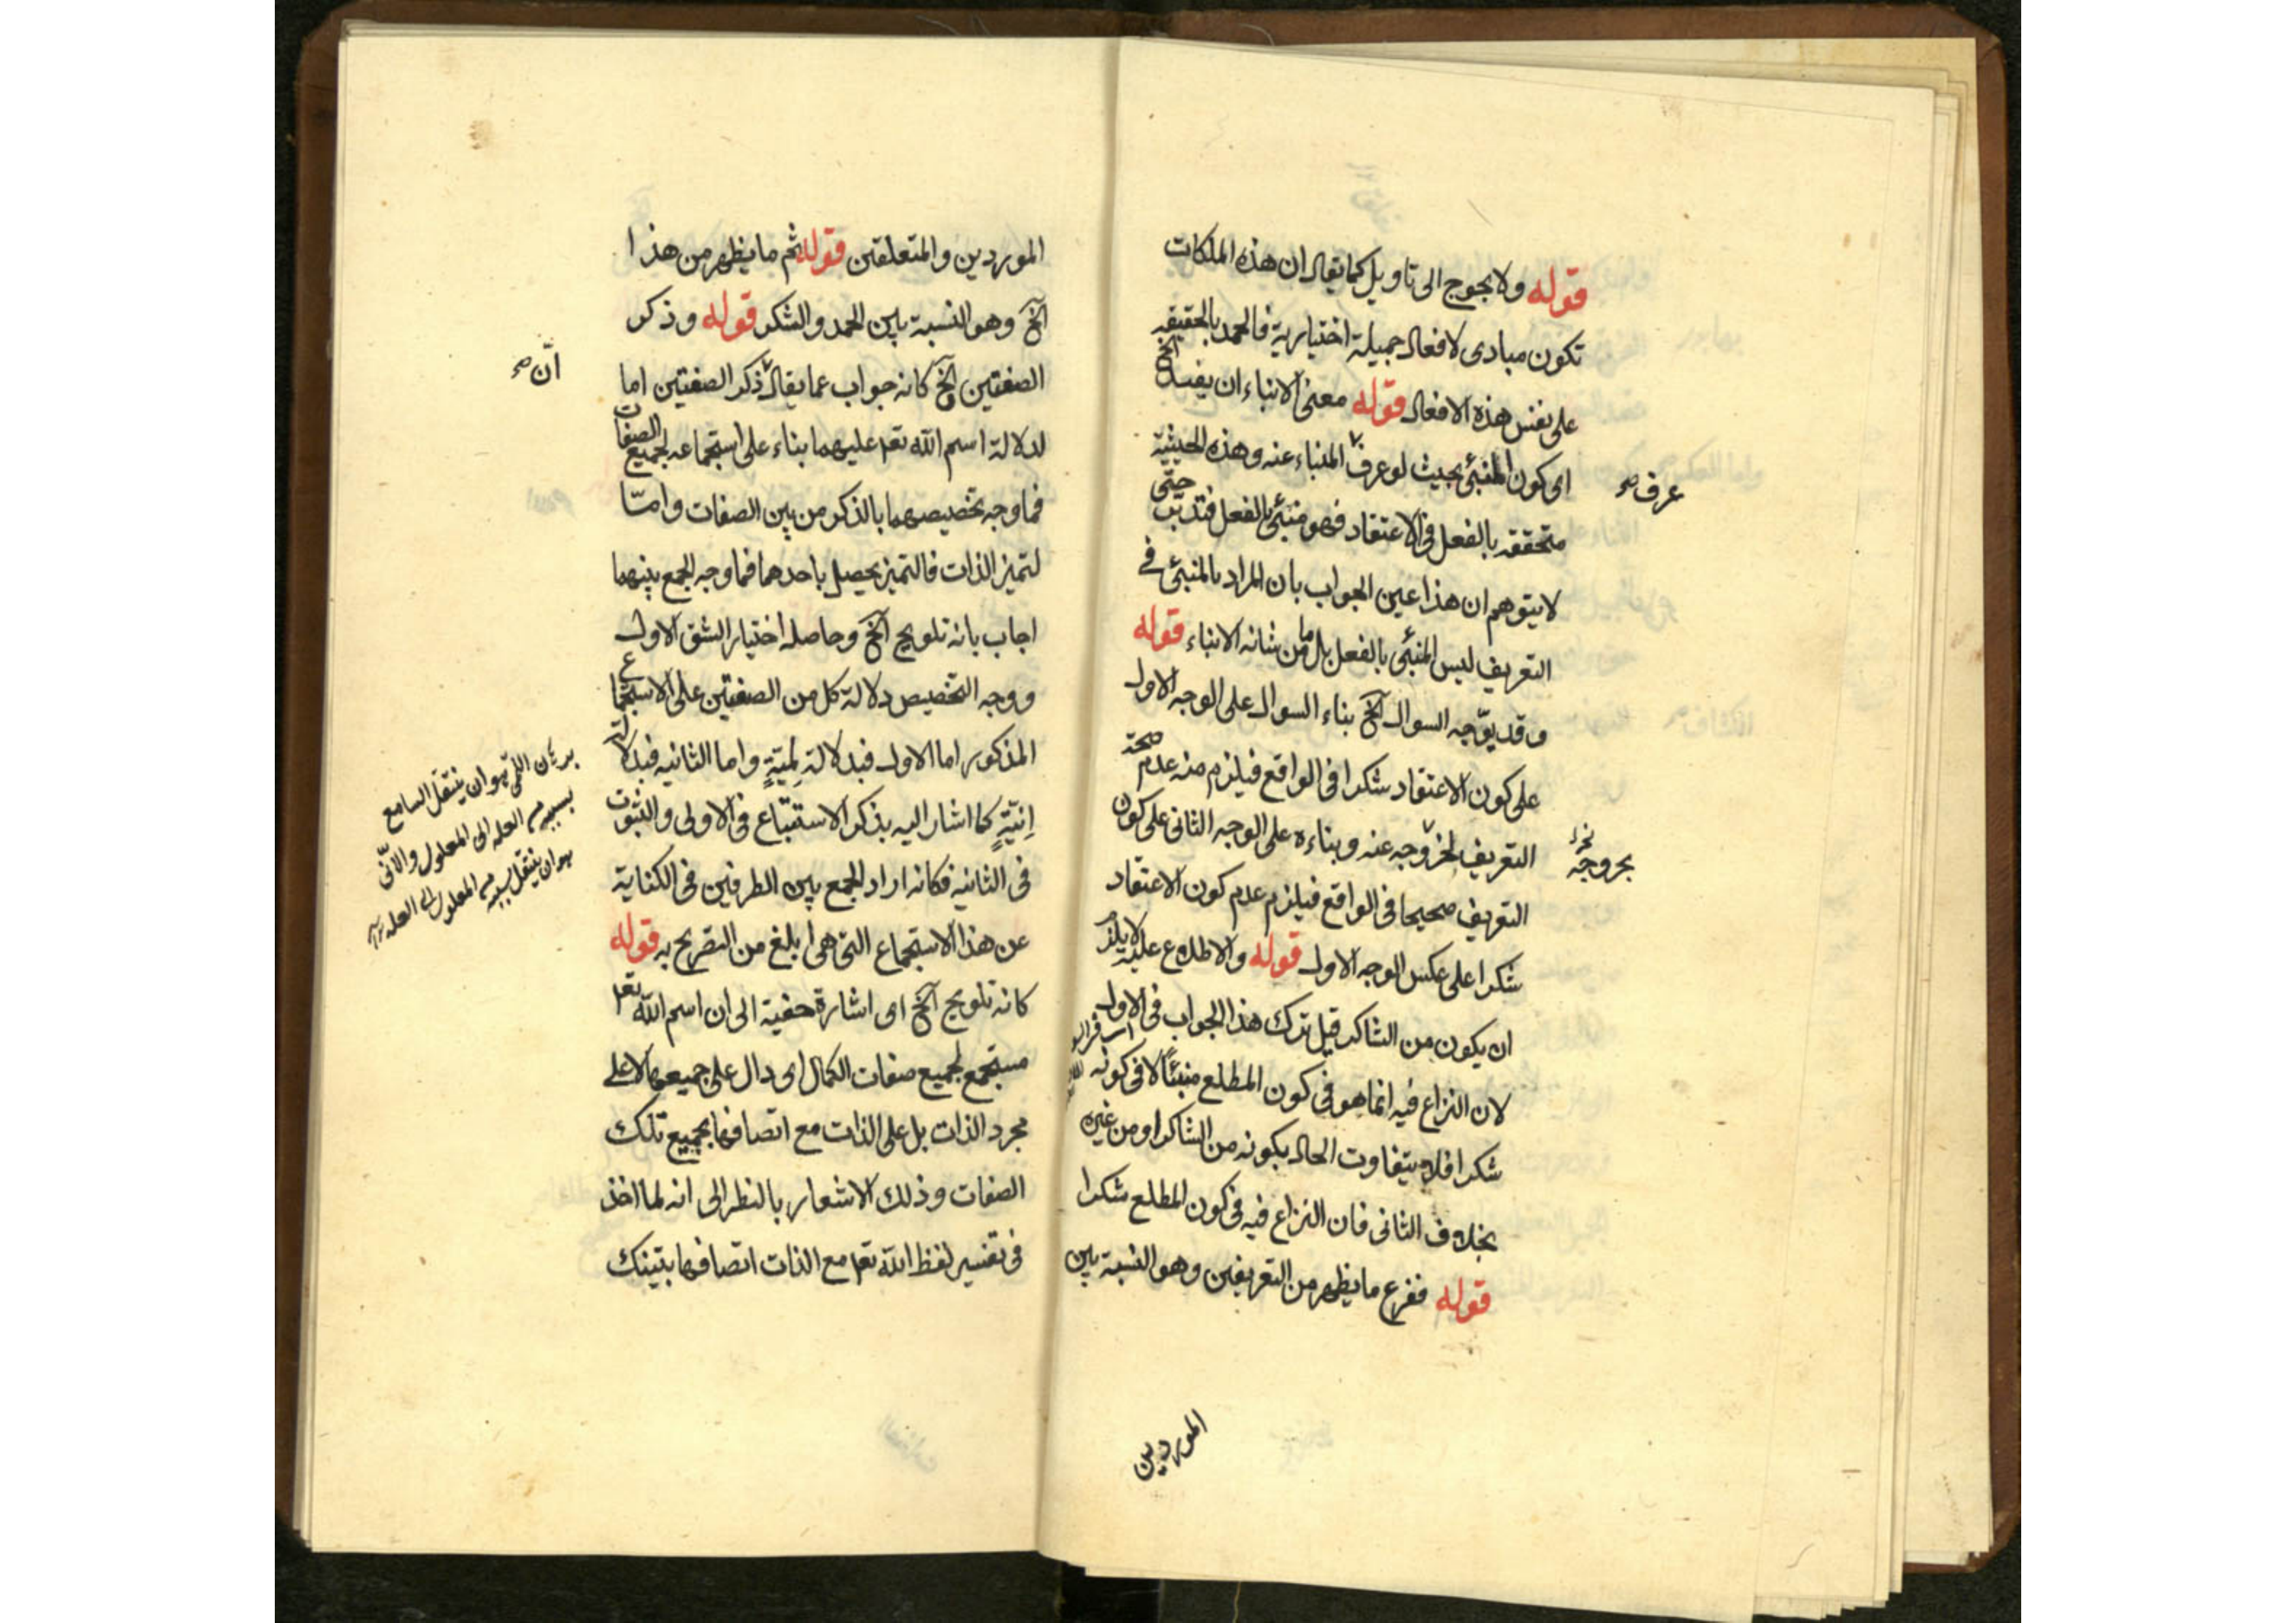 قوله ولا يحوج الى تاويل كما يقال ان هذه الملكات
تكون مبادى لافعال جميلة اختيارية فالحمد بالحقيقه
على نفس هذه الافعال قوله معنى الانباء ان يفيد الخ
اى كون المنبئ بحيث لو عرف المنباء عنه وهذه الحيثية
عرف صح
متحققه بالفعل فى الاعتقاد فهو منبئ بالفعل فتدبر حتى
لا يتوهم ان هذا عين الجواب بان المراد بالمنبئ فى
التعريف ليس المنبئ بالفعل بل ما من شانه الانباء قوله
وقد يوّجه السوال الخ بناء السوال على الوجه الاول
على كون الاعتقاد شكرا فى الواقع فيلزم منه عدم صحة
التعريف لخروجه عنه وبناءه على الوجه الثانى على كون
بخروجه
التعريف صحيحا فى الواقع فيلزم عدم كون الاعتقاد
شكرا على عكس الوجه الاول قوله والاطلاع عليه لا يلزم
ان يكون من الشاكر قيل ترك هذا الجواب فى الاول
لان النزاع فيه انما هو فى كون المطلع منبئًا لا فى كونه
شكرا فلا يتفاوت الحال بكونه من الشاكر او من غيره
بخلاف الثانى فان النزاع فيه فى كون المطلع شكرا
قوله ففرع ما يظهر من التعريفين وهو النسبة بين
الموردين
الموردين والمتعلقين قوله ثم ما يظهر من هذا
الخ وهو النسبة بين الحمد والشكر قوله وذكر
الصفتين الخ كانه جواب عما يقال ذكر الصفتين اما
انّ صح
لدلالة اسم الله تعم عليهما بناء على استجماعه لجميع الصفات
فما وجه تخصيصهما بالذكر من بين الصفات وامّا
لتميز الذات فالتميز يحصل باحدهما فما وجه الجمع بينهما
اجاب بانه تلويح الخ وحاصله اختيار الشق الاول
ووجه التخصيص دلالة كل من الصفتين على الاستجماع
المذكور اما الاول فبدلالة لِمّيّةٍ واما الثانيه فبدلالة
اِنيّةٍ كما اشار اليه بذكر الاستتباع فى الاولى والثبوت
فى الثانيه فكانه اراد الجمع بين الطرفين فى الكناية
عن هذا الاستجماع التى هى ابلغ من التصريح به قوله
كانه تلويح الخ اى اشارة خفية الى ان اسم الله تعم
مستجمع لجميع صفات الكمال اى دال على جميعها لا على
مجرد الذات بل على الذات مع اتصافها بجميع تلك
الصفات وذلك الاشعار بالنظر الى انه لما اخذ
فى تفسير لفظ الله تعم مع الذات اتصافها بتينك
برهان اللمّى هو ان ينتقل السامع
بسببه من العله الى المعلول والانّى
هو ان ينتقل بسببه من المعلول الى العله